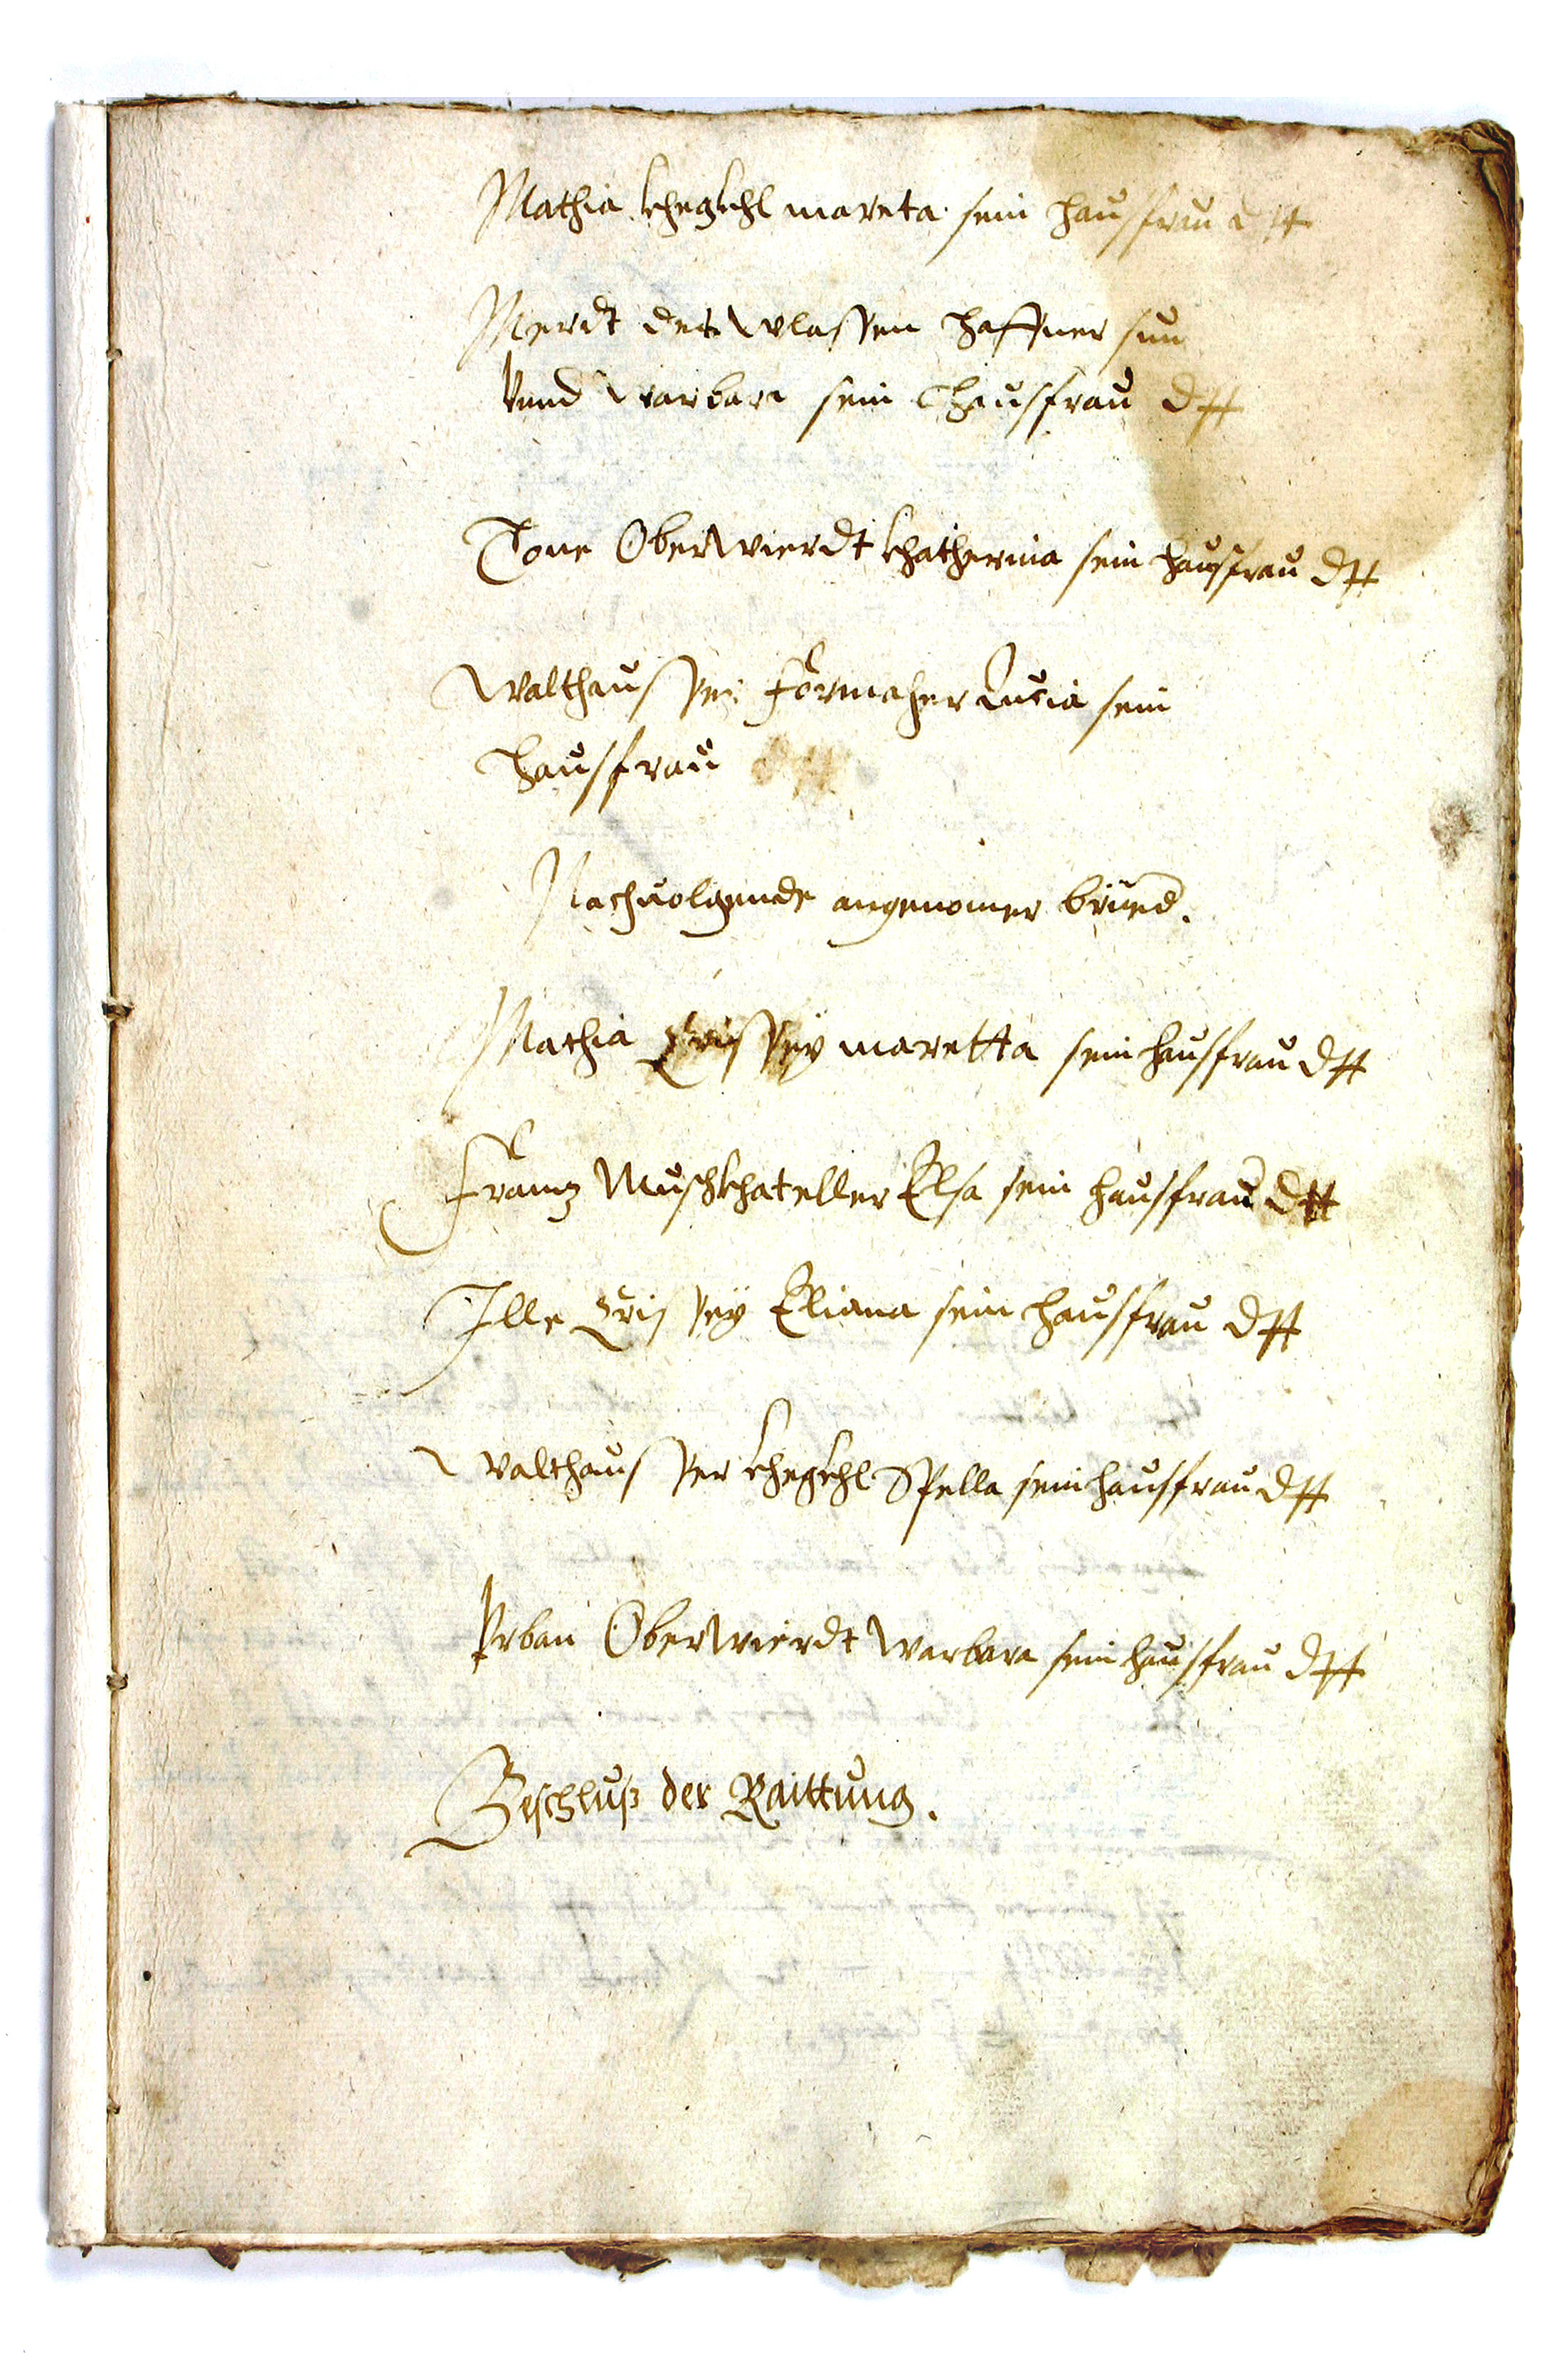 Mathia khegkhl mareta sein hausfrau d ₶
Merdt des Wlassen haffner sun
Vnnd Warbara sein hausfrau d ₶
Tone Oberwierdt khatherina sein hausfrau d ₶
Walthausser Formaher Lucia sein
hausfrau
Nachuolgende angenomer brued.
Mathia maretta sein hausfrau d ₶
Frantz Muschkhateller Elsa sein hausfrau d ₶
Ille Eliana sein hausfrau d ₶
Walthausser khegkhl Spella sein hausfrau d ₶
Vrban Oberwierdt Warbara sein hausfrau d ₶
Beschluß der Raittung.